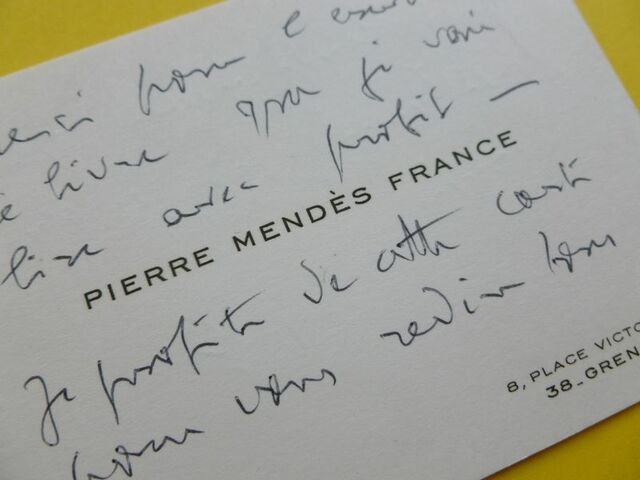 erci pour l'envoi
livre que je vais
lire avec profit —
PIERRE MENDÈS FRANCE
Je profite de cette carte
pour vous redire
8, PLACE VICTO
38_GREN